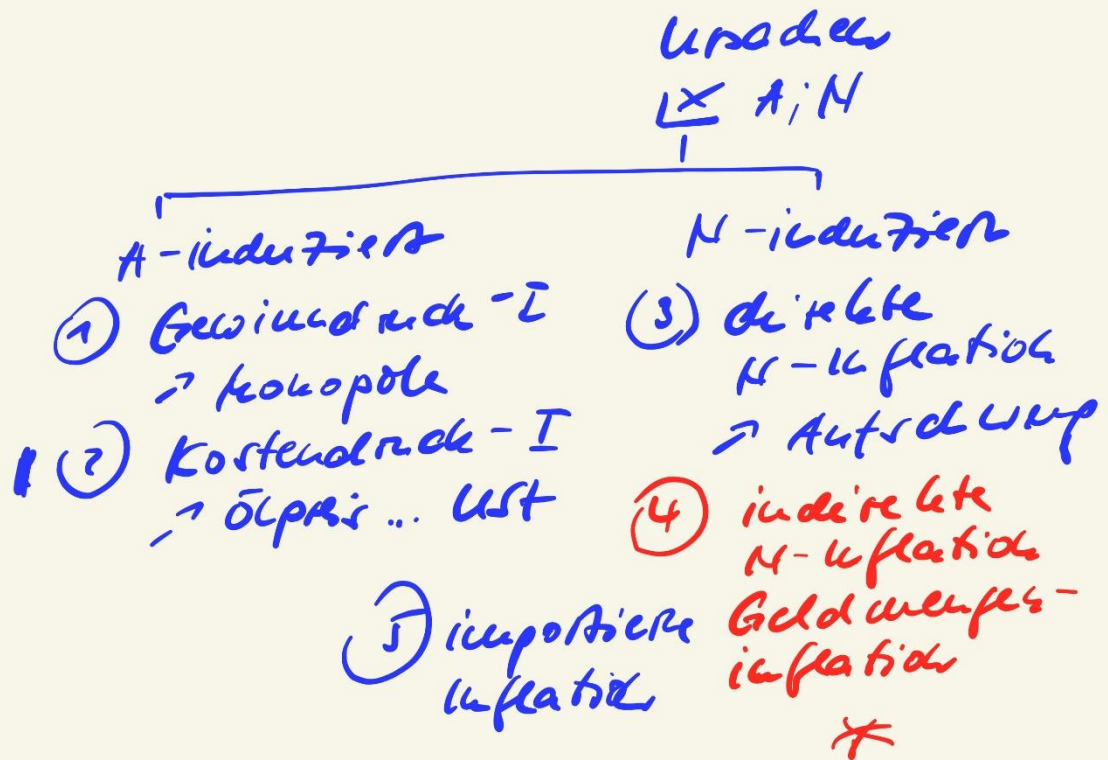 Ursachen
A; N
A-induziert
① Gewinndruck-I
↗ Monopole
② Kostendruck-I
↗ Ölpreis ... USt
N-induziert
③ direkte
N-Inflation
↗ Aufschwung
④ indirekte
N-Inflation
Geldmengen-
inflation
*
⑤ importierte
Inflation